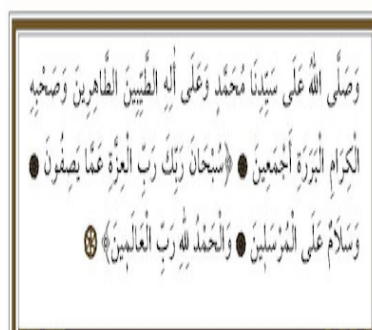 وَصَلَّى اللهُ عَلَى سَيِّدِنَا مُحَمَّدٍ وَعَلَى أَلِهِ الطَّيِّبِينَ الطَّاهِرِينَ وَصَحْبِهِ
الْكِرَامِ الْبَرَرَةِ أَجْمَعِينَ ● ﴿سُبْحَانَ رَبِّكَ رَبِّ الْعِزَّةِ عَمَّا يَصِفُونَ ●
وَسَلَامٌ عَلَى الْمُرْسَلِينَ ● وَالْحَمْدُ لِلهِ رَبِّ الْعَالَمِينَ﴾